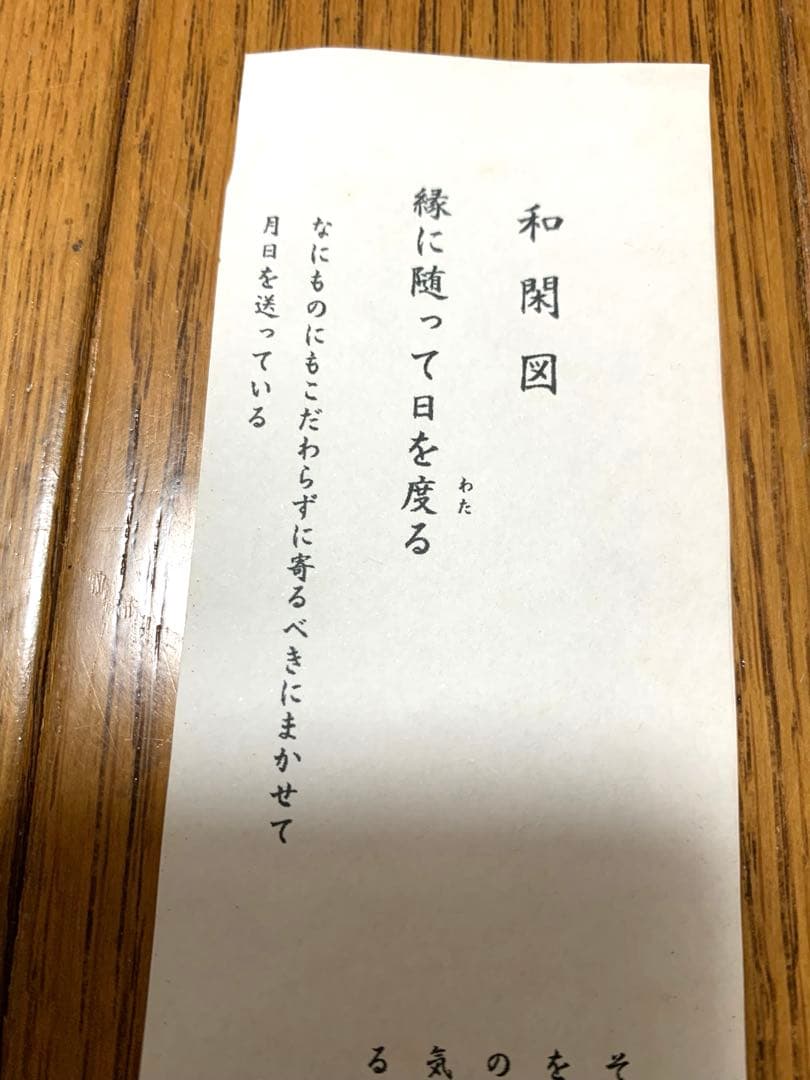 和閑図
縁に随って日を度る
わた
なにものにもこだわらずに寄るべきにまかせて
月日を送っている
そをの気る